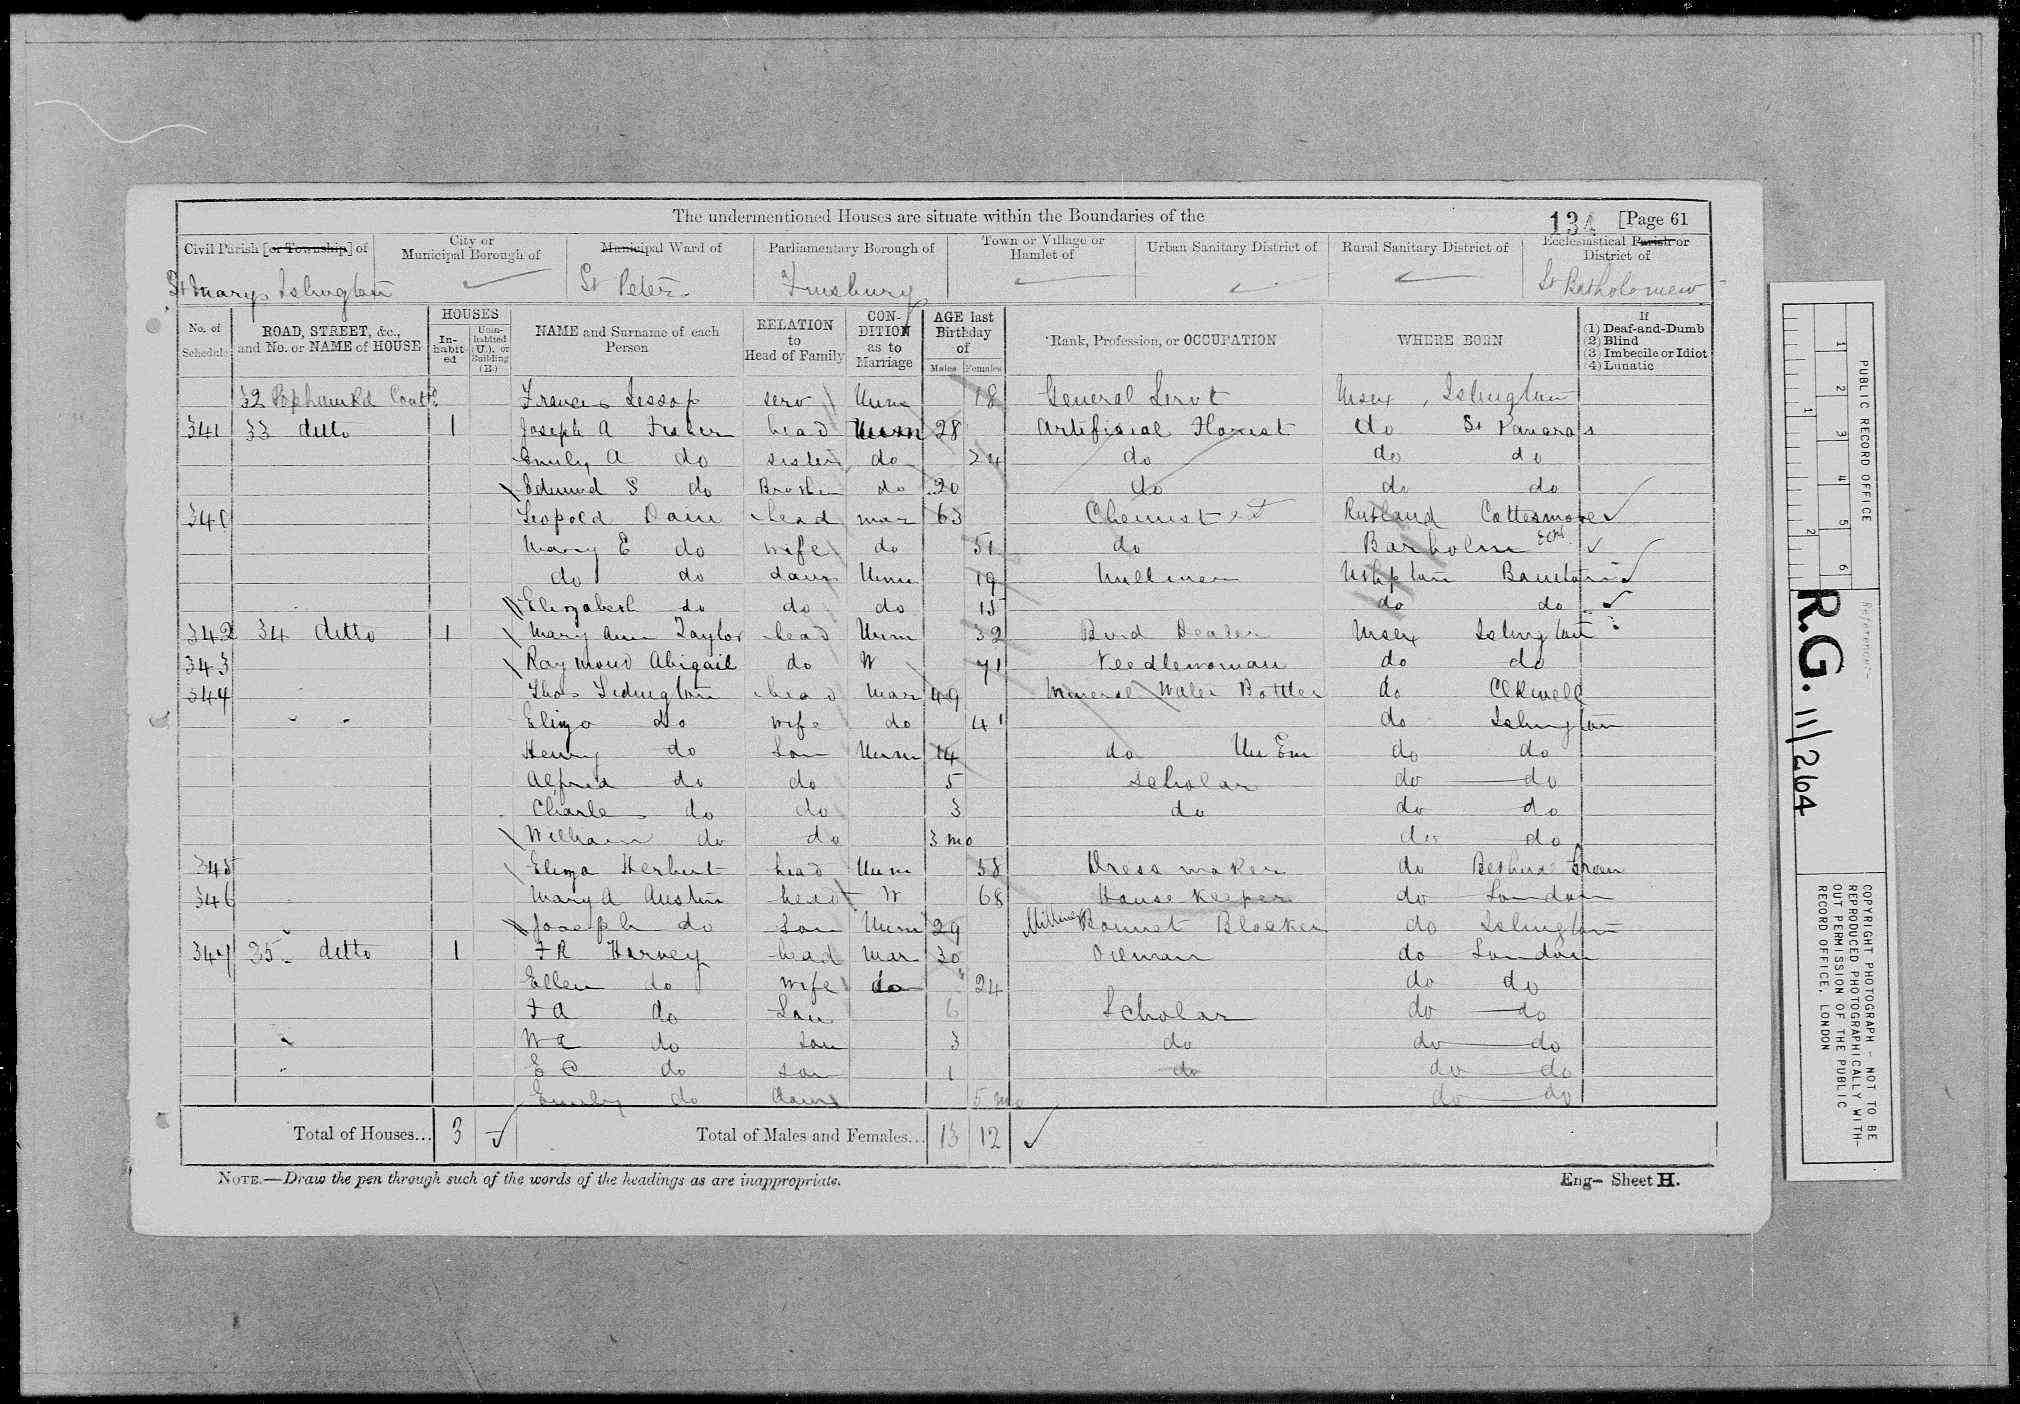 The undermentioned Houses are situate within the Boundaries of the 134 [Page 61
Civil Parish [or Township] of City or Municipal Borough of Municipal Ward of Parliamentary Borough of Town or Village or Hamlet of Urban Sanitary District of Rural Sanitary District of Ecclesiastical Parish or District of
St Marys Islington St Peters Finsbury St Batholomew
No. of Schedule ROAD, STREET, &c., and No. or NAME of HOUSE HOUSES Inhabited Uninhabited (U.), or Building (B.) NAME and Surname of each Person RELATION to Head of Family CONDITION as to Marriage AGE last Birthday of Males Females Rank, Profession, or OCCUPATION WHERE BORN If (1) Deaf-and-Dumb (2) Blind (3) Imbecile or Idiot (4) Lunatic
32 Popham Rd Francis Jessop serv Unm 18 General Servt Msex, Islington
341 33 ditto 1 Joseph A Fisher head Unm 28 Artificial Florist do St Pancras
Emily A do sister do 24 do do do
Edmund S do Brother do 20 do do do
340 Leopold Dain head mar 63 Chemist Rutland Cottesmore
Mary E do wife do 51 do Barholm
do do daur Unm 19 Milliner
Elizabeth do do do 15 do do
342 34 ditto 1 Mary Ann Taylor head Unm 32 Bird Dealer Msex Islington
343 Raymond Abigail do W 71 Needlewoman do do
344 Thos head Mar 49 Mineral Water Bottler do Clkwell
Eliza do wife do 41 do Islington
Henry do Son Unm 14 do Un Em do do
Alfred do do 5 Scholar do do
Charles do do 3 do do do
William do do 3 mo do do
345 Eliza Herbert head Unm 38 Dress maker do Bethnal Green
346 Mary A Austin head W 68 House Keeper do London
Joseph do Son Unm 29 Millinery Bonnet Blocker do Islington
347 35 ditto 1 F A Harvey head Mar 30 Oilman do London
Ellen do wife do 24 do do
F A do Son 6 Scholar do do
W E do Son 3 do do do
E C do son 1 do do do
Emily do daur 5 mo do do
Total of Houses... 3 Total of Males and Females... 13 12
NOTE.—Draw the pen through such of the words of the headings as are inappropriate. Eng— Sheet H.
PUBLIC RECORD OFFICE
1 2 3 4 5 6
1 2
Reference:-
R.G. 11/264
COPYRIGHT PHOTOGRAPH - NOT TO BE
REPRODUCED PHOTOGRAPHICALLY WITH-
OUT PERMISSION OF THE PUBLIC
RECORD OFFICE, LONDON